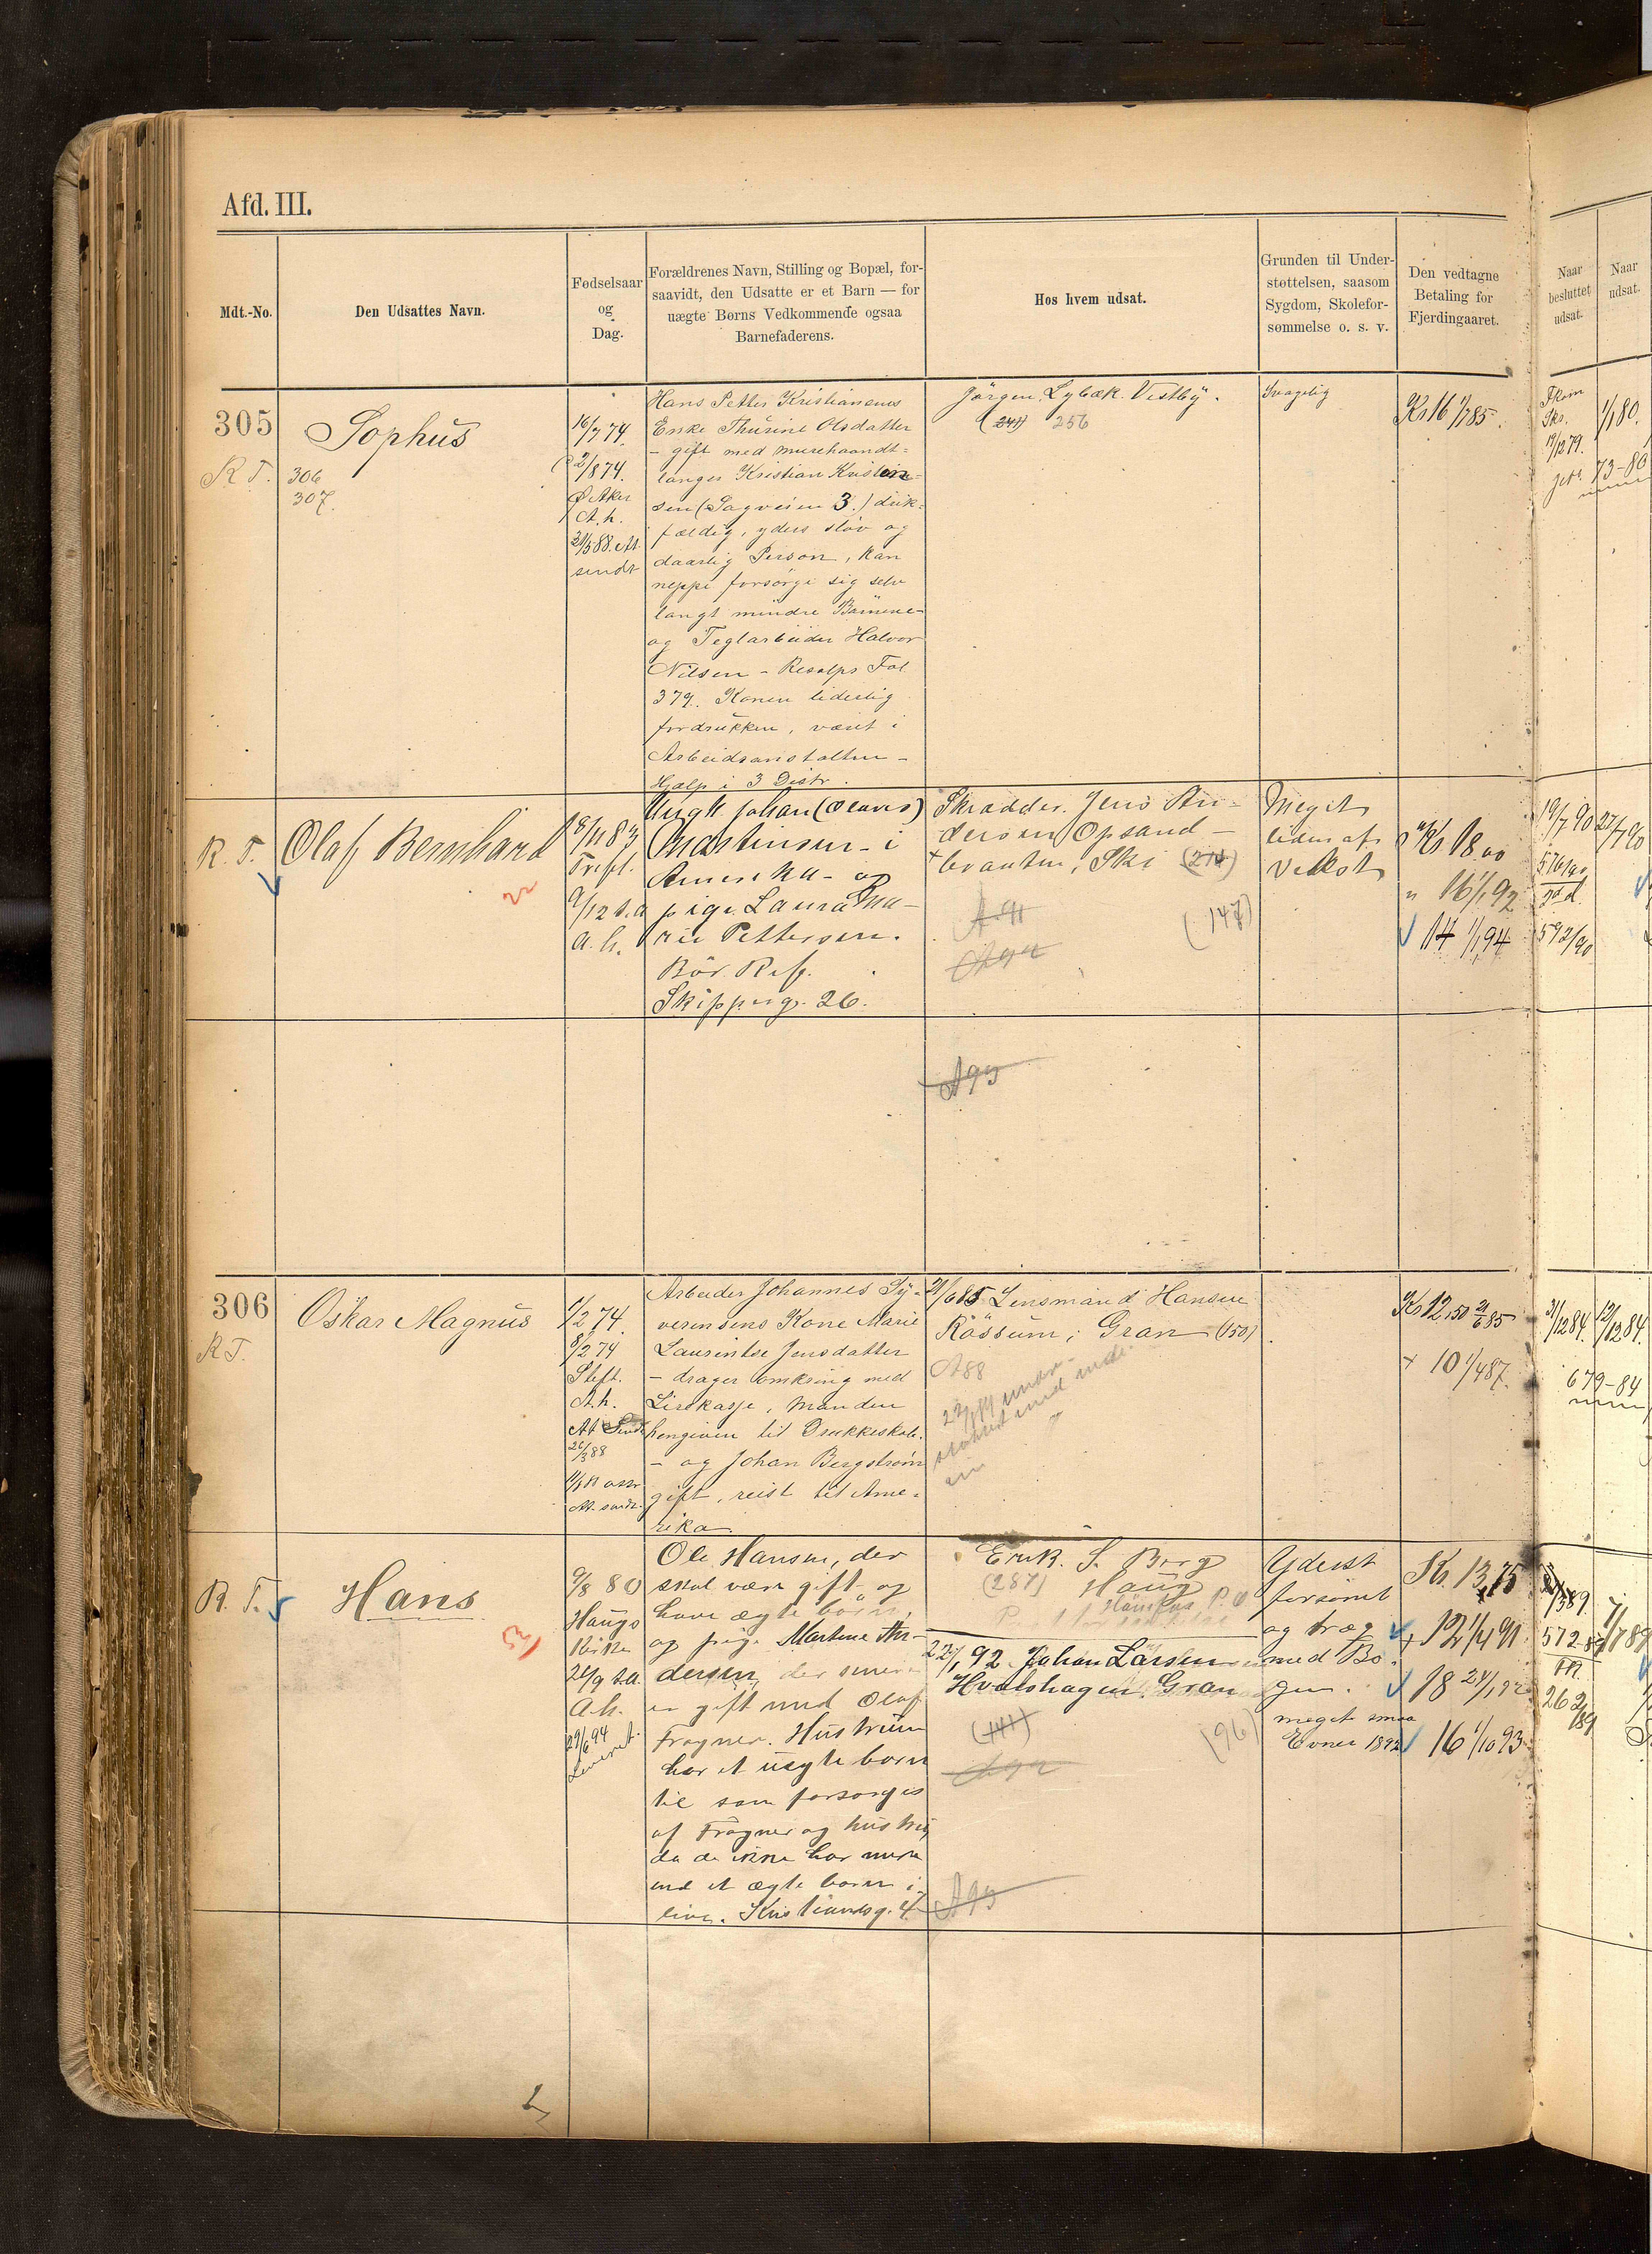 Afd. III.
Mdt.-No.
Den Udsattes Navn.
Fødselsaar
og
Dag.
Forældrenes Navn, Stilling og Bopæl, for-
saavidt, den Udsatte er et Barn — for
uægte Børns Vedkommende ogsaa
Barnefaderens.
Hos hvem udsat.
Grunden til Under-
støttelsen, saasom
Sygdom, Skolefor-
sømmelse o. s. v.
Den vedtagne
Betaling for
Fjerdingaaret.
Naar
besluttet
udsat.
Naar
udsat.
305
R T.
Sophus
306
307.
16/7 74.
2/8 74.
Ø. Aker
A. h.
31/5 88. At.
sendt
Hans Petter Kristiansens
Enke Thurine Olsdatter
- gift med murehaandt-
langer Kristian Kristian-
sen (Sagveien 3.) drik-
fældig, yders sløv og
daarlig Person, kan
neppe forsørge sig selv
langt mindre Børnene-
og Teglarbeider Halvor
Nilsen - Resolps Fol
379. Konen liderlig
fordrukken, været i
Arbeidsanstalten -
Hjælp i 3 Distr.
Jørgen Lybæk. Vestby.
(241) 256
Svagelig
Kr 16 1/1 85.
Fkom
Sks.
19/12 79.
1/1 80.
73-80
R. T.
Olaf Bernhard
18/11 83
Trefl.
9/12 s. a
a. h.
Ungk. Johan (Olaves)
Mastinsen - i
Amerika - og
pige Laura Ma-
rie Pettersen.
Bør Ref.
Skipperg. 26.
Skrædder Jens An-
dersen Opsand -
braaten, Ski (214)
(147)
A 91
A 92
A 93
Meget
liden af
Vekst
Kr 18.00
" 16 1/1 92
14 1/1 94
19/7 90
27/7 90
576/90
592/90
306
R T.
Oskar Magnus
1/2 74.
8/2 74
Slfl.
A. h.
At Sendt
26/3 88
At. sendt.
Arbeider Johannes Sy-
verinsens Kone Marie
Laurentse Jensdatter
- drager omkring med
Lirekasse, Manden
hengiven til Drukkeskab.
- og Johan Bergstrøm
gift, reist til Ame-
rika.
21/6 85 Lensmand Hansen
Røssum, Gran (150)
A 88
Kr 12,50 21/6 85
+ 10 1/4 87.
31/12 84.
12/12 84.
679-84
R. T.
Hans
9/8 80
Haugs
Kirke
26/9 s.a.
A. h.
29/6 94
Leveret.
Ole Hansen, der
skal være gift og
have ægte børn,
og pige Martine An-
dersen, der senere
er gift med Olaf
Frogner. Hustruen
har et uægte barn
til som forsørges
af Frogner og hustru,
da de ikke har mere
end et ægte barn i
live. Kristiansg. 4.
Erik. S. Berg
(287) Haug
Hønefos P. O
22/1 92 Johan Larsen
Hvalshagen. Gran
(141)
(96)
A 92
A 93
Yderst
forsømt
og træg
med Bø-
ger.
meget smaa
Evner 1892
Kr. 13,75
+ 12 1/4 91.
18 24/1 92
16 1/10 93
7/7 89
572-89
262/89